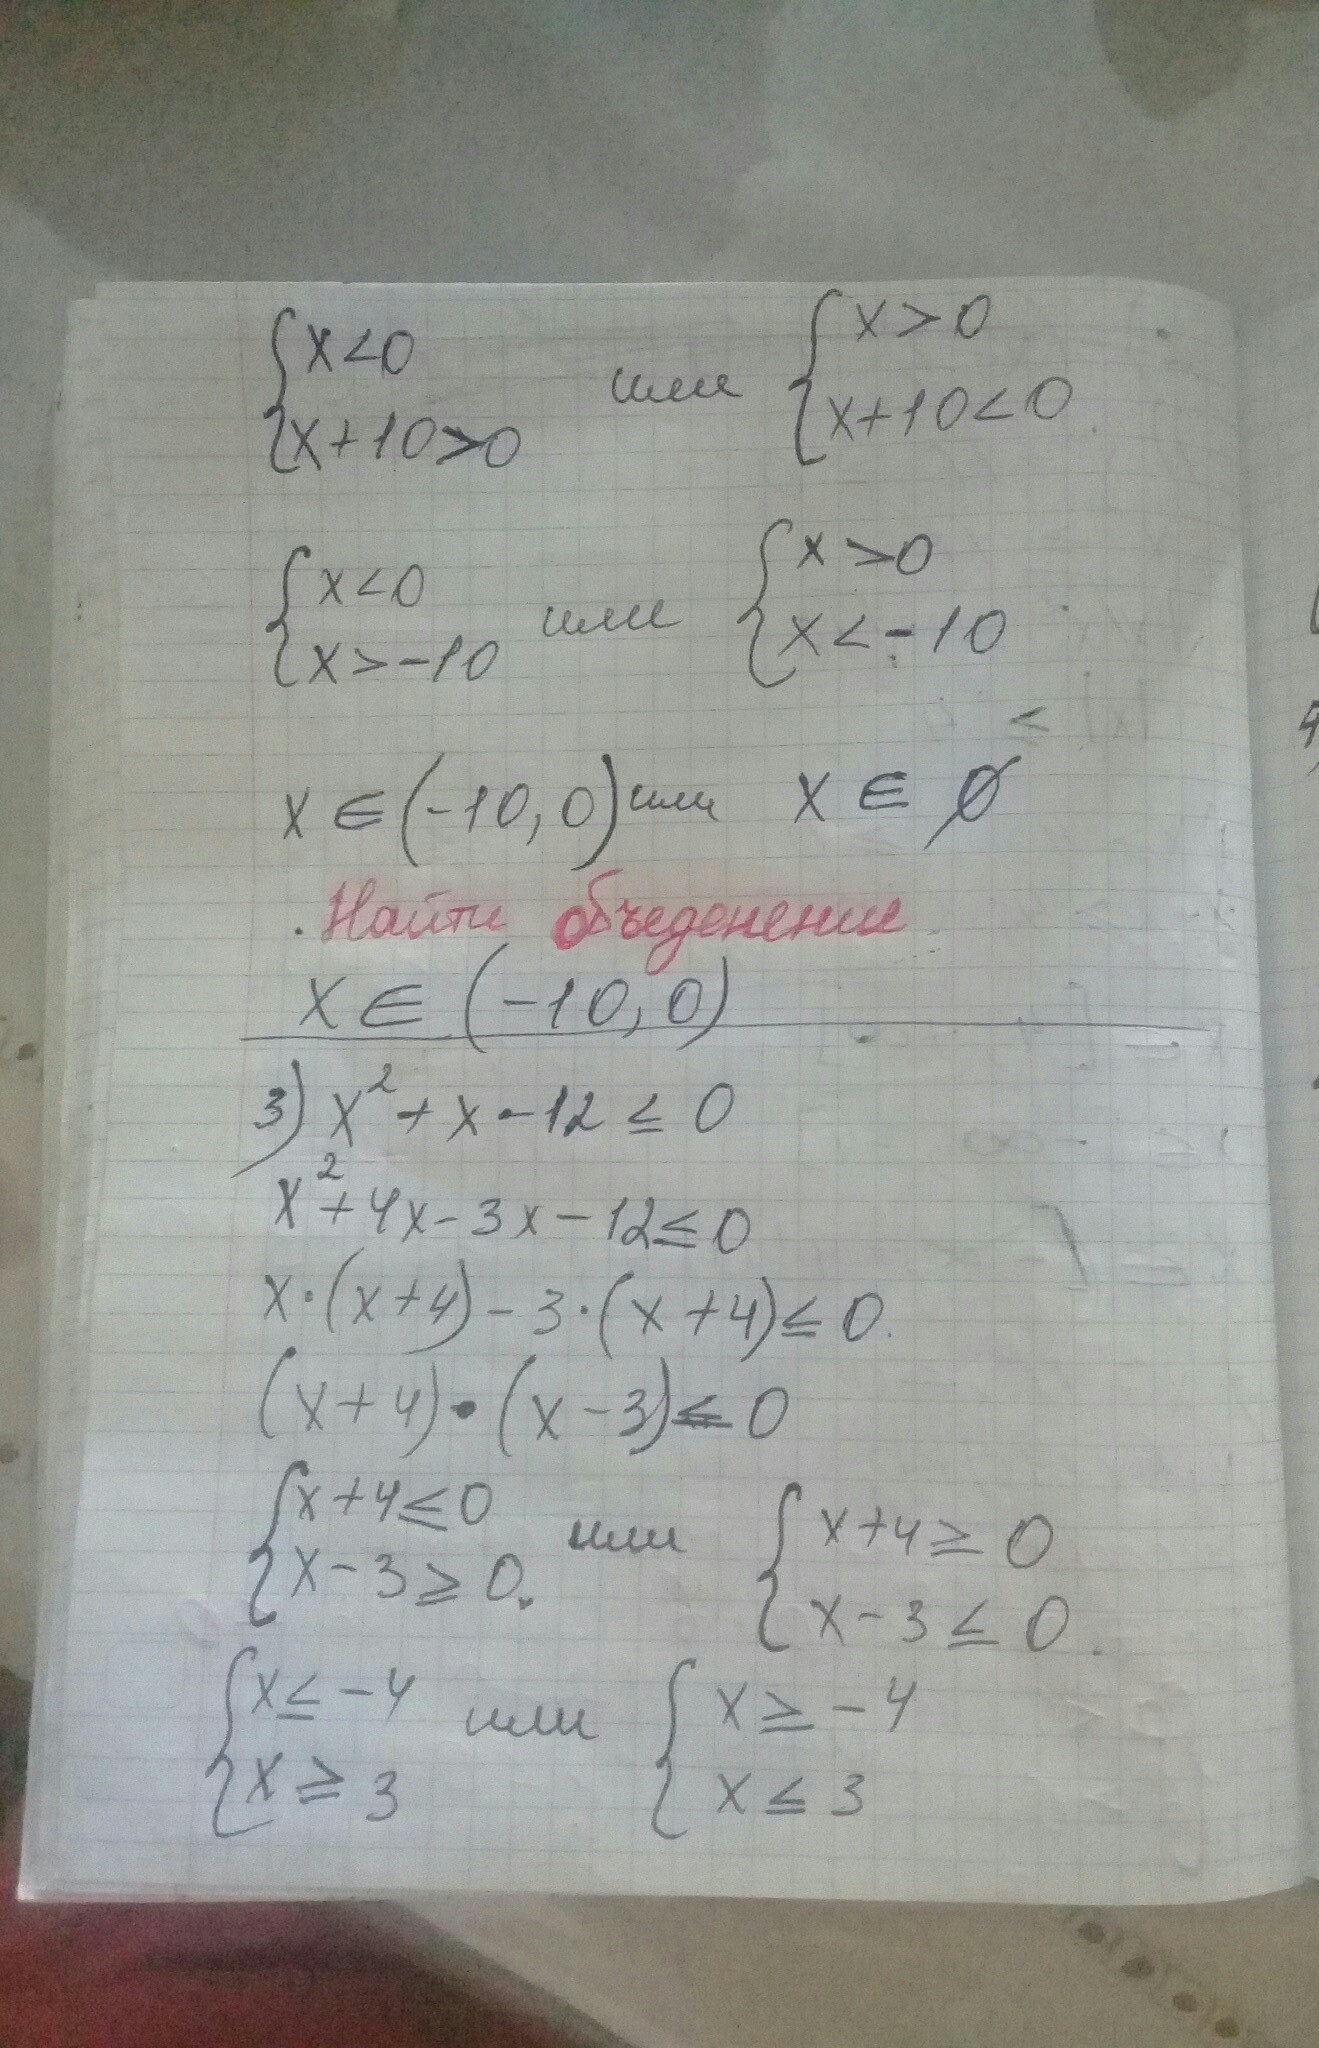 {x<0 или {x>0
{x+10>0 {x+10<0
{x<0 или {x>0
{x>-10 {x<-10
x∈(-10,0) или x∈∅
Найти объеденение
x∈(-10,0)
3) x²+x-12≤0
x²+4x-3x-12≤0
x·(x+4)-3·(x+4)≤0.
(x+4)·(x-3)≤0
{x+4≤0 или {x+4≥0
{x-3≥0. {x-3≤0.
{x≤-4 или {x≥-4
{x≥3 {x≤3